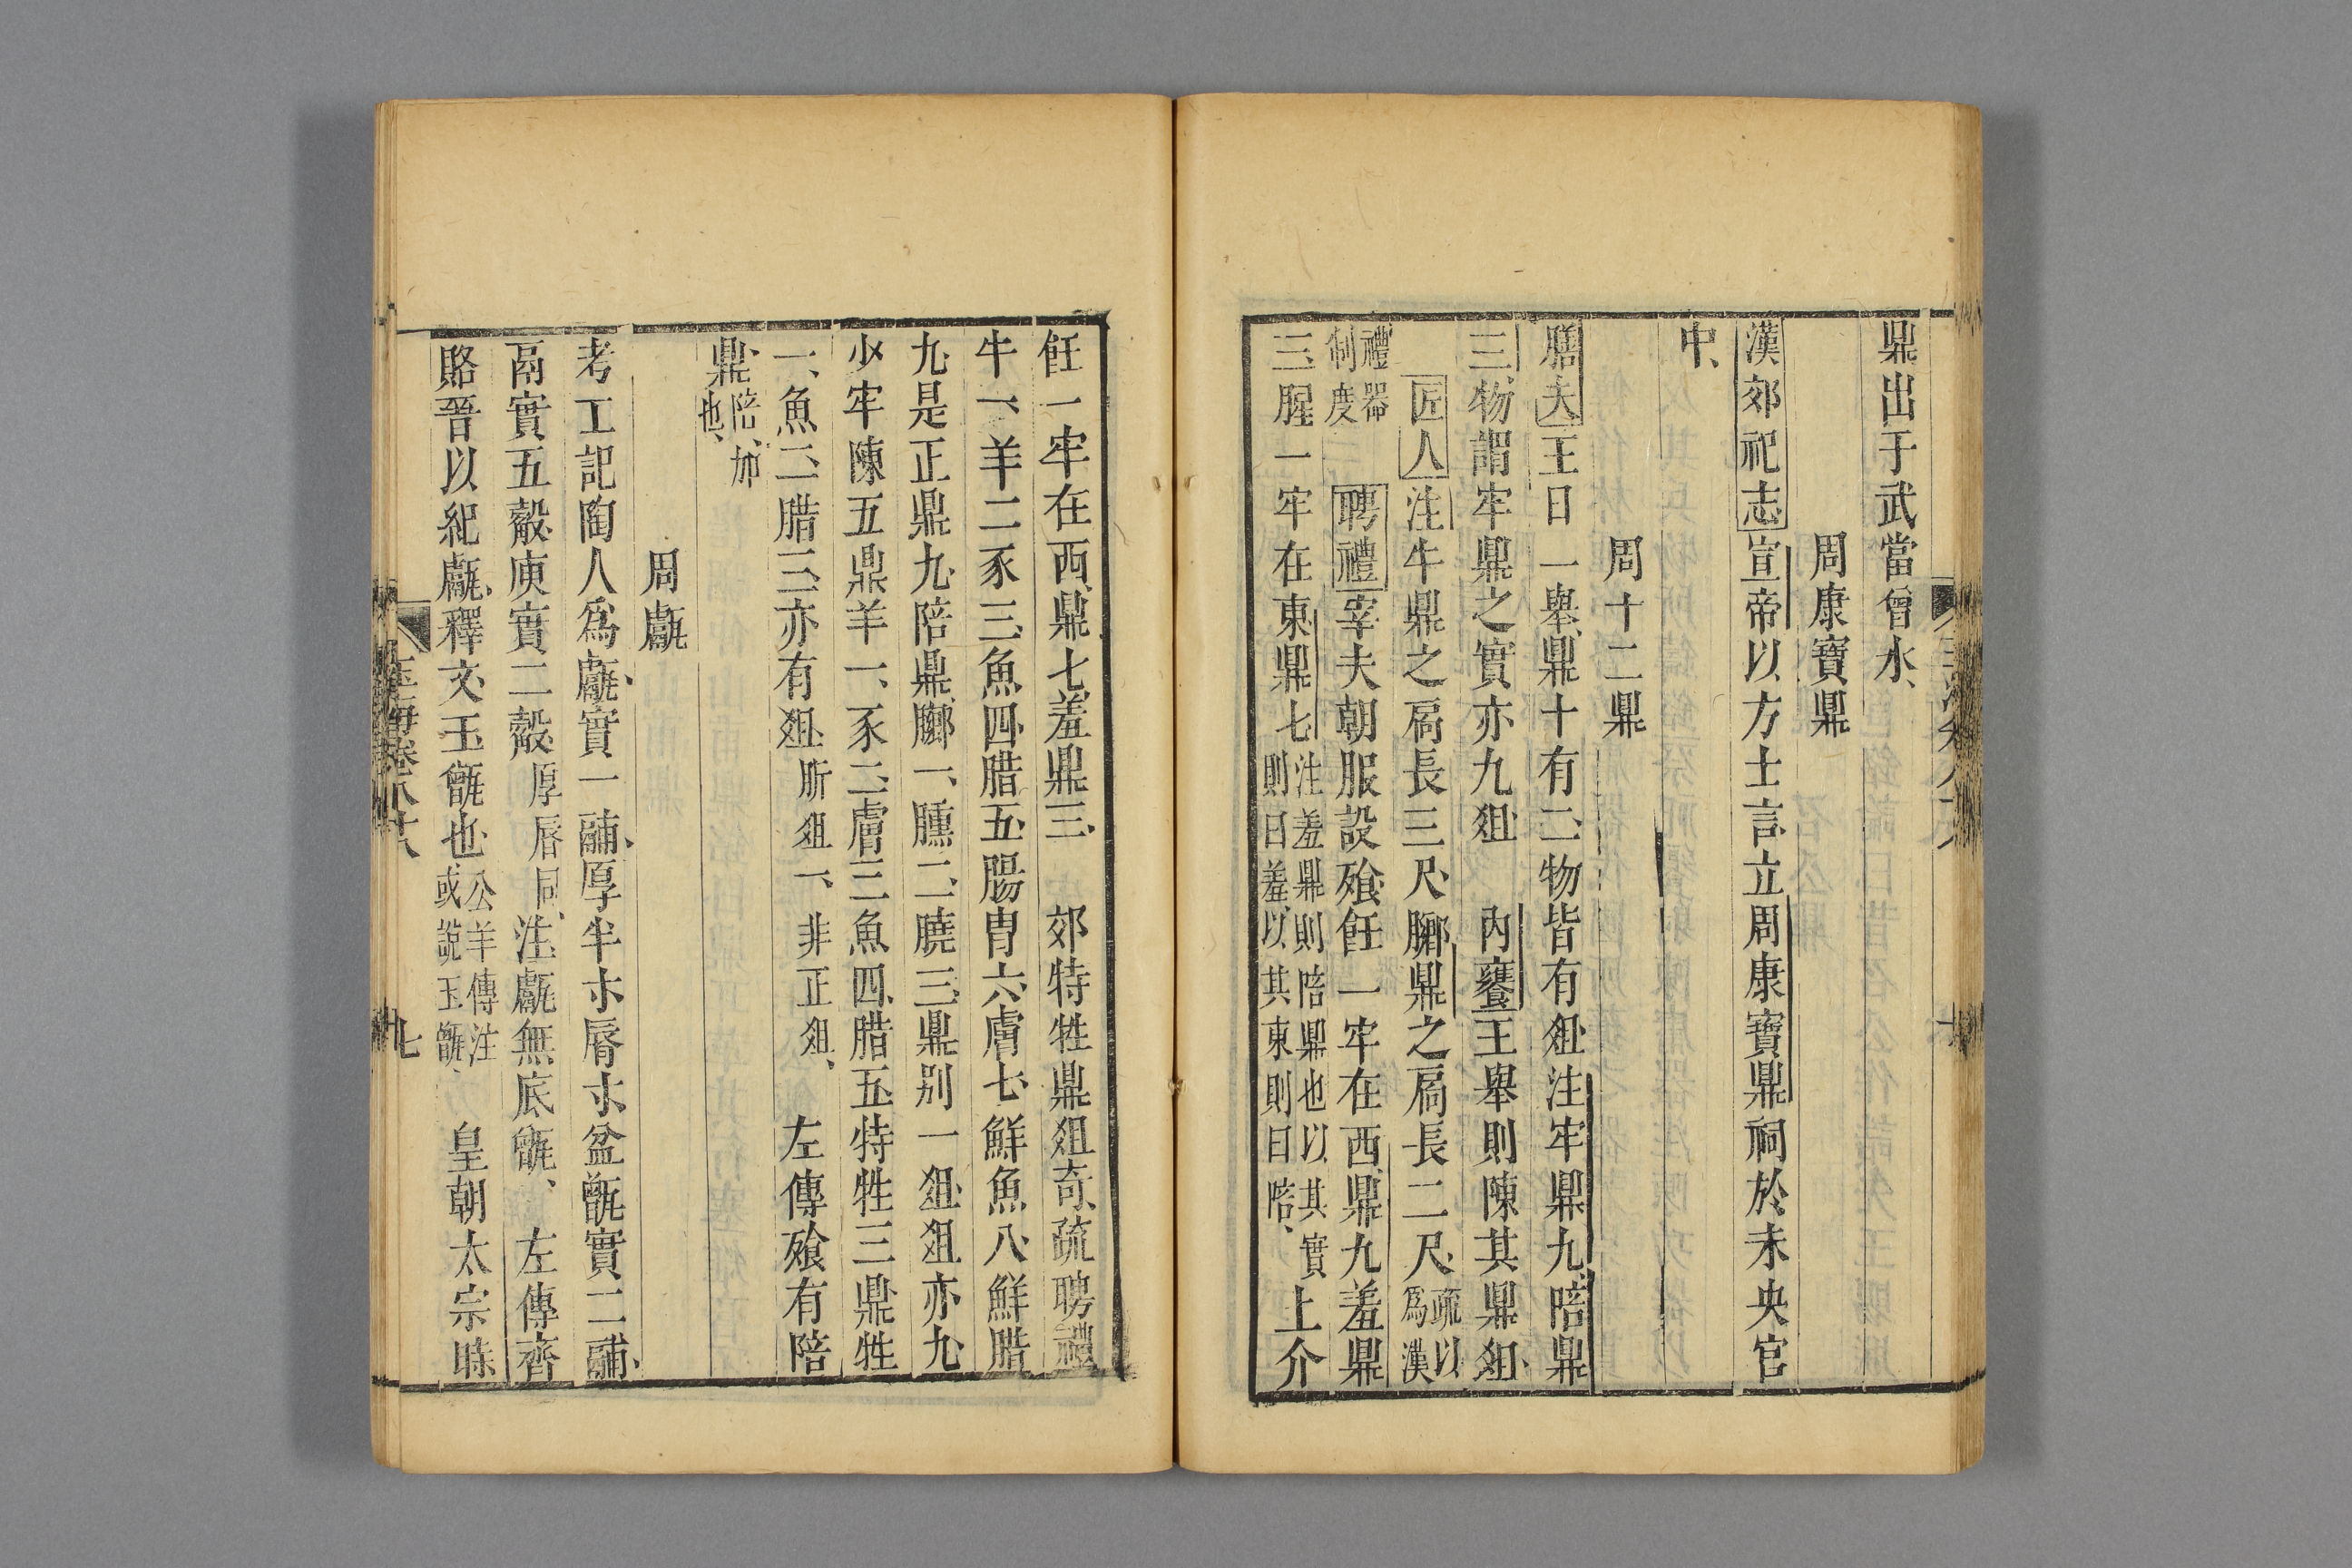 鼎出于武當曾水、
周康寶鼎
漢郊祀志宣帝以方士言立周康寶鼎祠於未央宮
中、
周十二鼎
膳夫王日一舉、鼎十有二、物皆有俎注牢鼎九、陪鼎
三物謂牢鼎之實亦九俎 內饔王舉則陳其鼎俎、
匠人注牛鼎之扃長三尺、膷鼎之扃長二尺、疏以
爲漢
禮器
制度 聘禮宰夫朝服設飧、飪一牢在西、鼎九羞鼎
三、腥一牢在東、鼎七注羞鼎則陪鼎也以其實
則曰羞、以其東則曰陪、上介
飪一牢在西、鼎七羞鼎三、 郊特牲鼎俎奇、疏聘禮
牛一、羊二豕三、魚四、腊五、腸胃六、膚七、鮮魚八、鮮腊
九、是正鼎九、陪鼎、膷一、臐二、膮三、鼎别一俎、俎亦九、
少牢陳五鼎羊一、豕二、膚三魚四、腊五、特牲三鼎、牲
一、魚二、腊三、亦有俎、肵俎一、非正俎、 左傳飧有陪
鼎、陪、加
也、
周甗
考工記陶人爲甗、實一鬴、厚半寸、脣寸、盆甑實二鬴、
鬲實五觳、庾實二觳、厚脣同、注、甗無底甑、 左傳齊
賂晉以紀甗、釋文、玉甑也、公羊傳注
或說玉甑、 皇朝太宗時
玉海卷八十八
九七